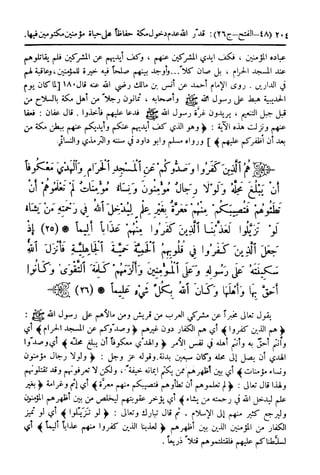 ٢٠٤ (٤٨-الفتح-ج٢٦): قدّر الله عدم دخول مكة حفاظاً على حياة مؤمنين مكتومين فيها.
عباده المؤمنين، فكف أيدي المشركين عنهم، وكف أيديهم عن المشركين فلم يقاتلوهم
عند المسجد الحرام، بل صان كلاً... وأوجد بينهم صلحاً فيه خيرة للمؤمنين، وعاقبة لهم
في الدارين. روى الإمام أحمد عن أنس بن مالك رضي الله عنه قال: [لما كان يوم
الحديبية هبط على رسول الله ﷺ وأصحابه، ثمانون رجلاً من أهل مكة بالسلاح من
قبل جبل التنعيم، يريدون غرة رسول الله ﷺ فدعا عليهم فأخذوا. قال عفان: فعفا
عنهم ونزلت هذه الآية: ﴿وهو الذي كف أيديهم عنكم وأيديكم عنهم ببطن مكة من
بعد أن أظفركم عليهم﴾] ورواه مسلم وأبو داود في سننه والترمذي والنسائي.
هُمُ الَّذِينَ كَفَرُوا وَصَدُّوكُمْ عَنِ الْمَسْجِدِ الْحَرَامِ وَالْهَدْيَ مَعْكُوفًا
أَنْ يَبْلُغَ مَحِلَّهُ وَلَوْلَا رِجَالٌ مُؤْمِنُونَ وَنِسَاءٌ مُؤْمِنَاتٌ لَمْ تَعْلَمُوهُمْ أَنْ
تَطَئُوهُمْ فَتُصِيبَكُمْ مِنْهُمْ مَعَرَّةٌ بِغَيْرِ عِلْمٍ لِيُدْخِلَ اللَّهُ فِي رَحْمَتِهِ مَنْ يَشَاءُ
لَوْ تَزَيَّلُوا لَعَذَّبْنَا الَّذِينَ كَفَرُوا مِنْهُمْ عَذَابًا أَلِيمًا ﴿٢٥﴾ إِذْ
جَعَلَ الَّذِينَ كَفَرُوا فِي قُلُوبِهِمُ الْحَمِيَّةَ حَمِيَّةَ الْجَاهِلِيَّةِ فَأَنْزَلَ اللَّهُ
سَكِينَتَهُ عَلَى رَسُولِهِ وَعَلَى الْمُؤْمِنِينَ وَأَلْزَمَهُمْ كَلِمَةَ التَّقْوَى وَكَانُوا
أَحَقَّ بِهَا وَأَهْلَهَا وَكَانَ اللَّهُ بِكُلِّ شَيْءٍ عَلِيمًا ﴿٢٦﴾
يقول تعالى مخبراً عن مشركي العرب من قريش ومن مالأهم على رسول الله ﷺ:
﴿هم الذين كفروا﴾ أي هم الكفار دون غيرهم ﴿وصدّوكم عن المسجد الحرام﴾ أي
وأنتم أحق به وأنتم أهله في نفس الأمر ﴿والهدي معكوفاً أن يبلغ محله﴾ أي وصدوا
الهدي أن يصل إلى محله وكان سبعين بدنة. وقوله عز وجل: ﴿ولولا رجال مؤمنون
ونساء مؤمنات﴾ أي بين أظهرهم ممن يكتم إيمانه خيفة، ولكن لا تعرفونهم وقد تقتلونهم
ولهذا قال تعالى: ﴿لم تعلموهم أن تطأوهم فتصيبكم منهم معرة﴾ أي إثم وغرامة ﴿بغير
علم ليدخل الله في رحمته من يشاء﴾ أي يؤخر عقوبتهم ليخلص من بين أظهرهم المؤمنون
وليرجع كثير منهم إلى الإسلام. ثم قال تبارك وتعالى: ﴿لو تزيلوا﴾ أي لو تميز
الكفار من المؤمنين الذين بين أظهرهم ﴿لعذبنا الذين كفروا منهم عذاباً أليماً﴾ أي
لسلطناكم عليهم فلقتلتموهم قتلاً ذريعاً.